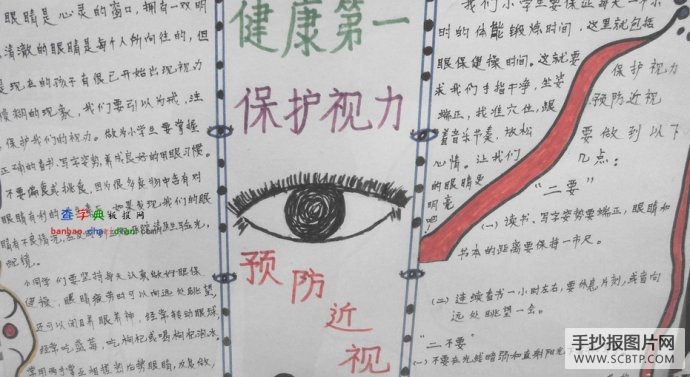 眼睛是心灵的窗口,拥有一双明
清澈的眼睛是每个人所向往的,但
是现在的孩子有很已开始出现视力
模糊的现象,我们要引以为戒,注
保护我们的视力。做为小学生要掌握
正确的看书、写字姿势,养成良好的用眼习惯。
不要偏食或挑食,因为很多食物中含有对
眼睛有利的
我们的眼
睛有不良情况,
验光,
配镜。
小同学们要坚持每天认真做好眼保
健操,眼睛疲劳时可以向远处眺望,
还可以闭目养眼养神,经常转动眼球,
经常吃蓝莓,吃枸杞或喝枸杞泡水,
查字典 板报网
banbao.chazidian.com
健康第一
保护视力
预防近视
我们小学生要保证每天一个小
时的体能锻炼时间,这里就包括
眼保健操时间。这就要
求我们手指干净,坐姿
端正,找准穴位,跟
着音乐节奏,放松
心情。让我们
的眼睛更
明亮
吧!
保护视力
预防近视
要做到以下
几点:
"二要"
(一)读书、写字姿势要端正,眼睛和
书本的距离要保持一市尺。
(二)连续看书一小时左右,要休息片刻,或者向
远处眺望一会。
"二不要"
(一)不要在光线暗弱和直射阳光下
手抄报图片网
WWW.SCBTP.COM